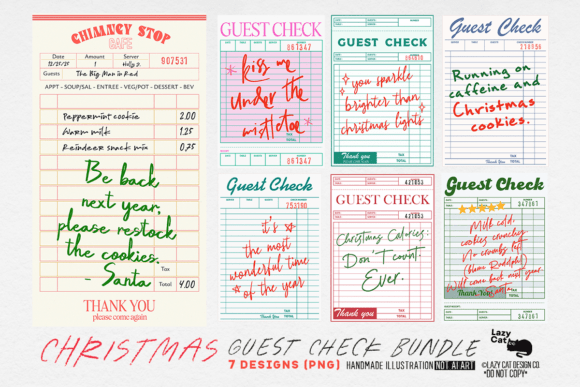 CHIMNEY STOP
CAFE
Date Amount Server
12/25/25 1 Holly J. 907531
Guests The Big Man in Red
APPT - SOUP/SAL - ENTREE - VEG/POT - DESSERT - BEV
Peppermint cookie 2.00
Warm milk 1.25
Reindeer snack mix 0.75
Be back
next year,
please restock
the cookies.
- Santa
Tax
Total 4.00
THANK YOU
please come again
GUEST CHECK
861347
kiss me
under the
mistletoe
861347
GUEST CHECK
you sparkle
brighter than
christmas lights
Thank you
Guest Check
Running on
caffeine and
Christmas
cookies.
Guest Check
753100
it's
the most
wonderful time
of the year
GUEST CHECK
421853
Christmas Calories
Don't count
Ever.
421853
Guest Check
347207
Milk cold,
cookies crunchy
No crumbs left
(blame Rudolph)
Will come back next year.
Thank You
347207
CHRISTMAS GUEST CHECK BUNDLE
7 DESIGNS (PNG) HANDMADE ILLUSTRATION NOT AI ART
Lazy
Cat
©LAZY CAT DESIGN CO.
*DO NOT COPY*